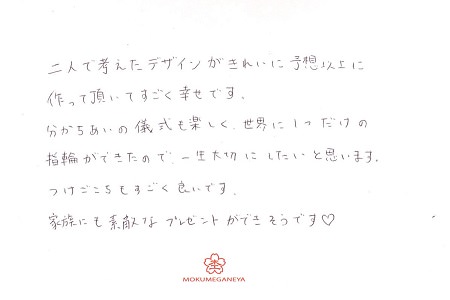 二人で考えたデザインがきれいに予想以上に
作って頂いてすごく幸せです。
分かちあいの儀式も楽しく、世界に1つだけの
指輪ができたので、一生大切にしたいと思います。
つけごこちもすごく良いです。
家族にも素敵なプレゼントができそうです♡
MOKUMEGANEYA